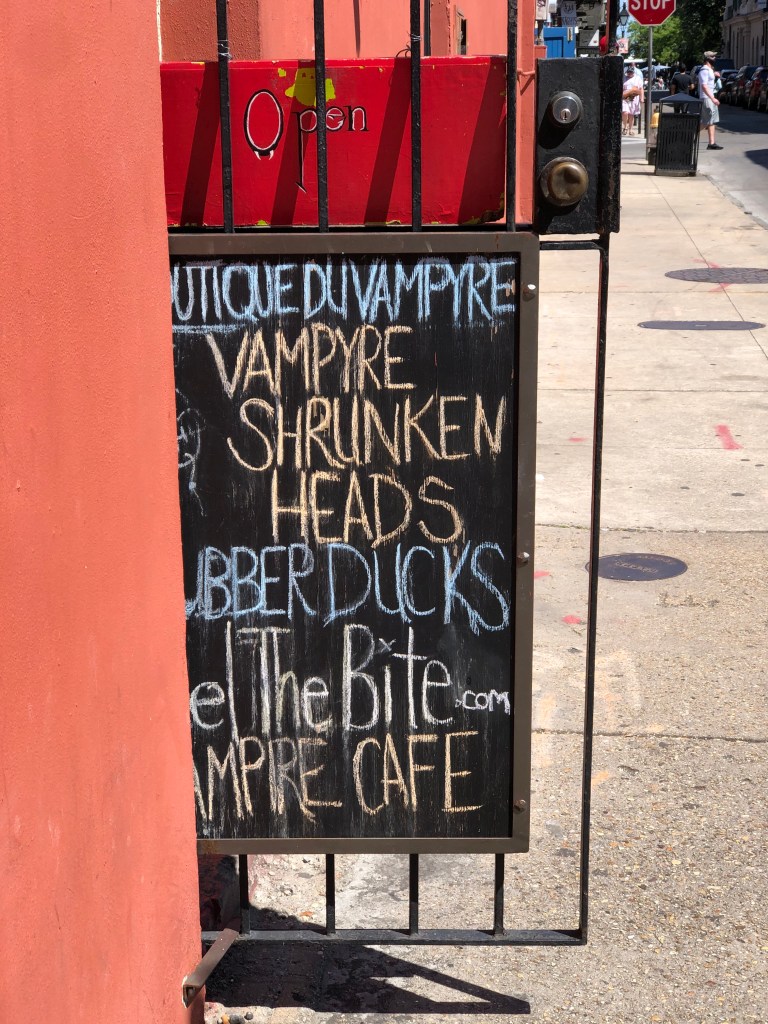 STOP
Open
UTIQUE DU VAMPYRE
VAMPYRE
SHRUNKEN
HEADS
UBBER DUCKS
el The Bite.com
AMPIRE CAFE